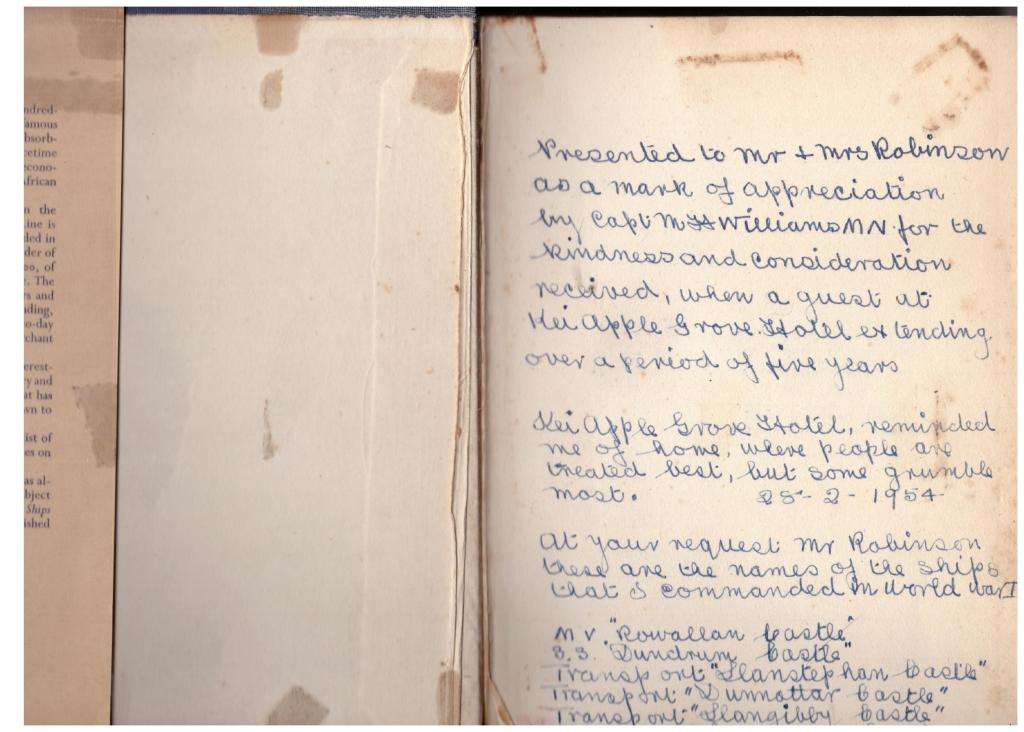 ndred-
amous
bsorb-
etime
econo-
frican
n the
Line is
ded in
der of
oo, of
. The
rs and
ding,
o-day
chant
erest-
y and
at has
wn to
ist of
es on
as al-
bject
Ships
ished
Presented to Mr + Mrs Robinson
as a mark of appreciation
by Capt M H Williams MN for the
kindness and consideration
received, when a guest at
Kei Apple Grove Hotel extending
over a period of five years
Kei Apple Grove Hotel, reminded
me of home, where people are
treated best, but some grumble
most. 28-2-1954
At your request Mr Robinson
these are the names of the ships
that I commanded in World War
M V. "Rowallan Castle"
S.S. "Dundrum Castle"
Transport "Llanstephan Castle"
Transport "Dunnottar Castle"
Transport "Llangibby Castle"